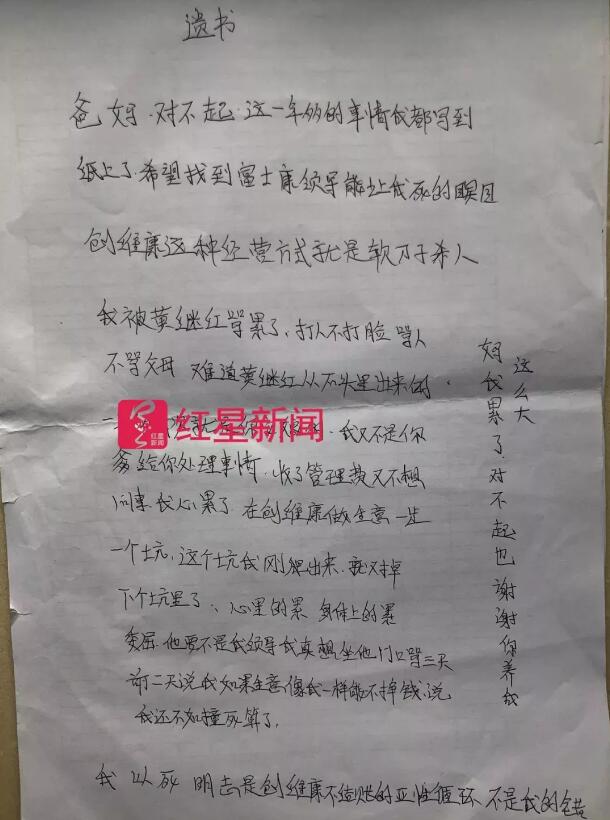 遗书
爸妈.对不起.这一年多的事情我都写到
纸上了.希望找到富士康领导能让我死的瞑目
创维康这种经营方式就是软刀子杀人
我被黄继红骂累了,打人不打脸骂人
不骂父母 难道黄继红从石头里出来的.
就是你 我又不是你
务给你处理事情.收了管理费又不想
问事.我心累了.在创维康做生意一步
一个坑,这个坑我刚爬出来.就又掉
下个坑里了、心里的累 身体上的累
委屈.他要不是我领导我真想坐他门口骂三天
前二天说我如果生意像我一样能不掉钱.说
我还不如撞死算了.
我以死明志是创维康不结账的恶性循环 不是我的错
妈我累了.对不起也谢谢你养我
这么大
红星新闻
红星新闻